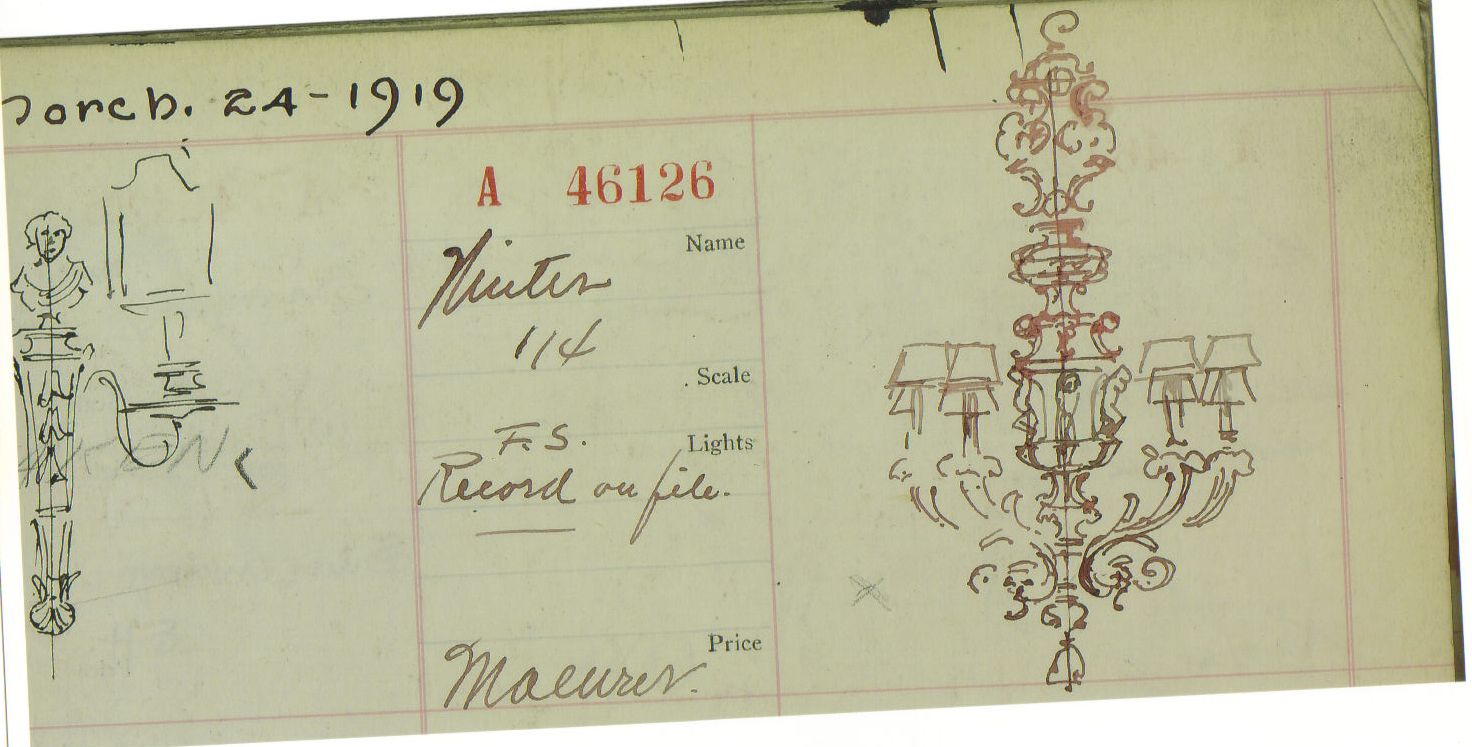 March. 24-1919
A 46126
Name
Winter
114
Scale
F.S.
Lights
Record on file.
Price